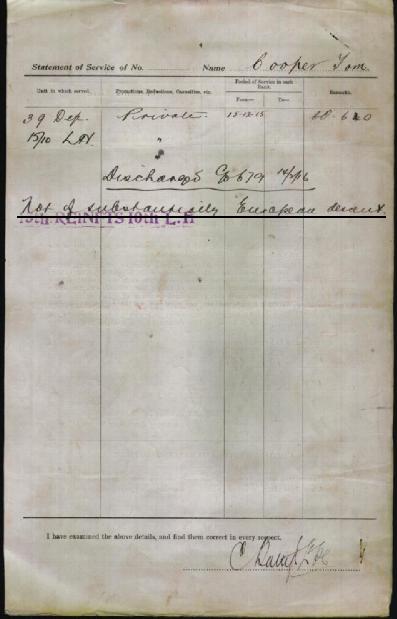 Statement of Service of No. Name Cooper Tom
Unit in which served. Promotions, Reductions, Casualties, etc. Period of Service in each Rank. Remarks.
From— To—
39 Dep. Private 15-12-15
15/10 L.H. "
Discharged
Not of substantially European descent.
REINFTS 10th L.H
I have examined the above details, and find them correct in every respect.